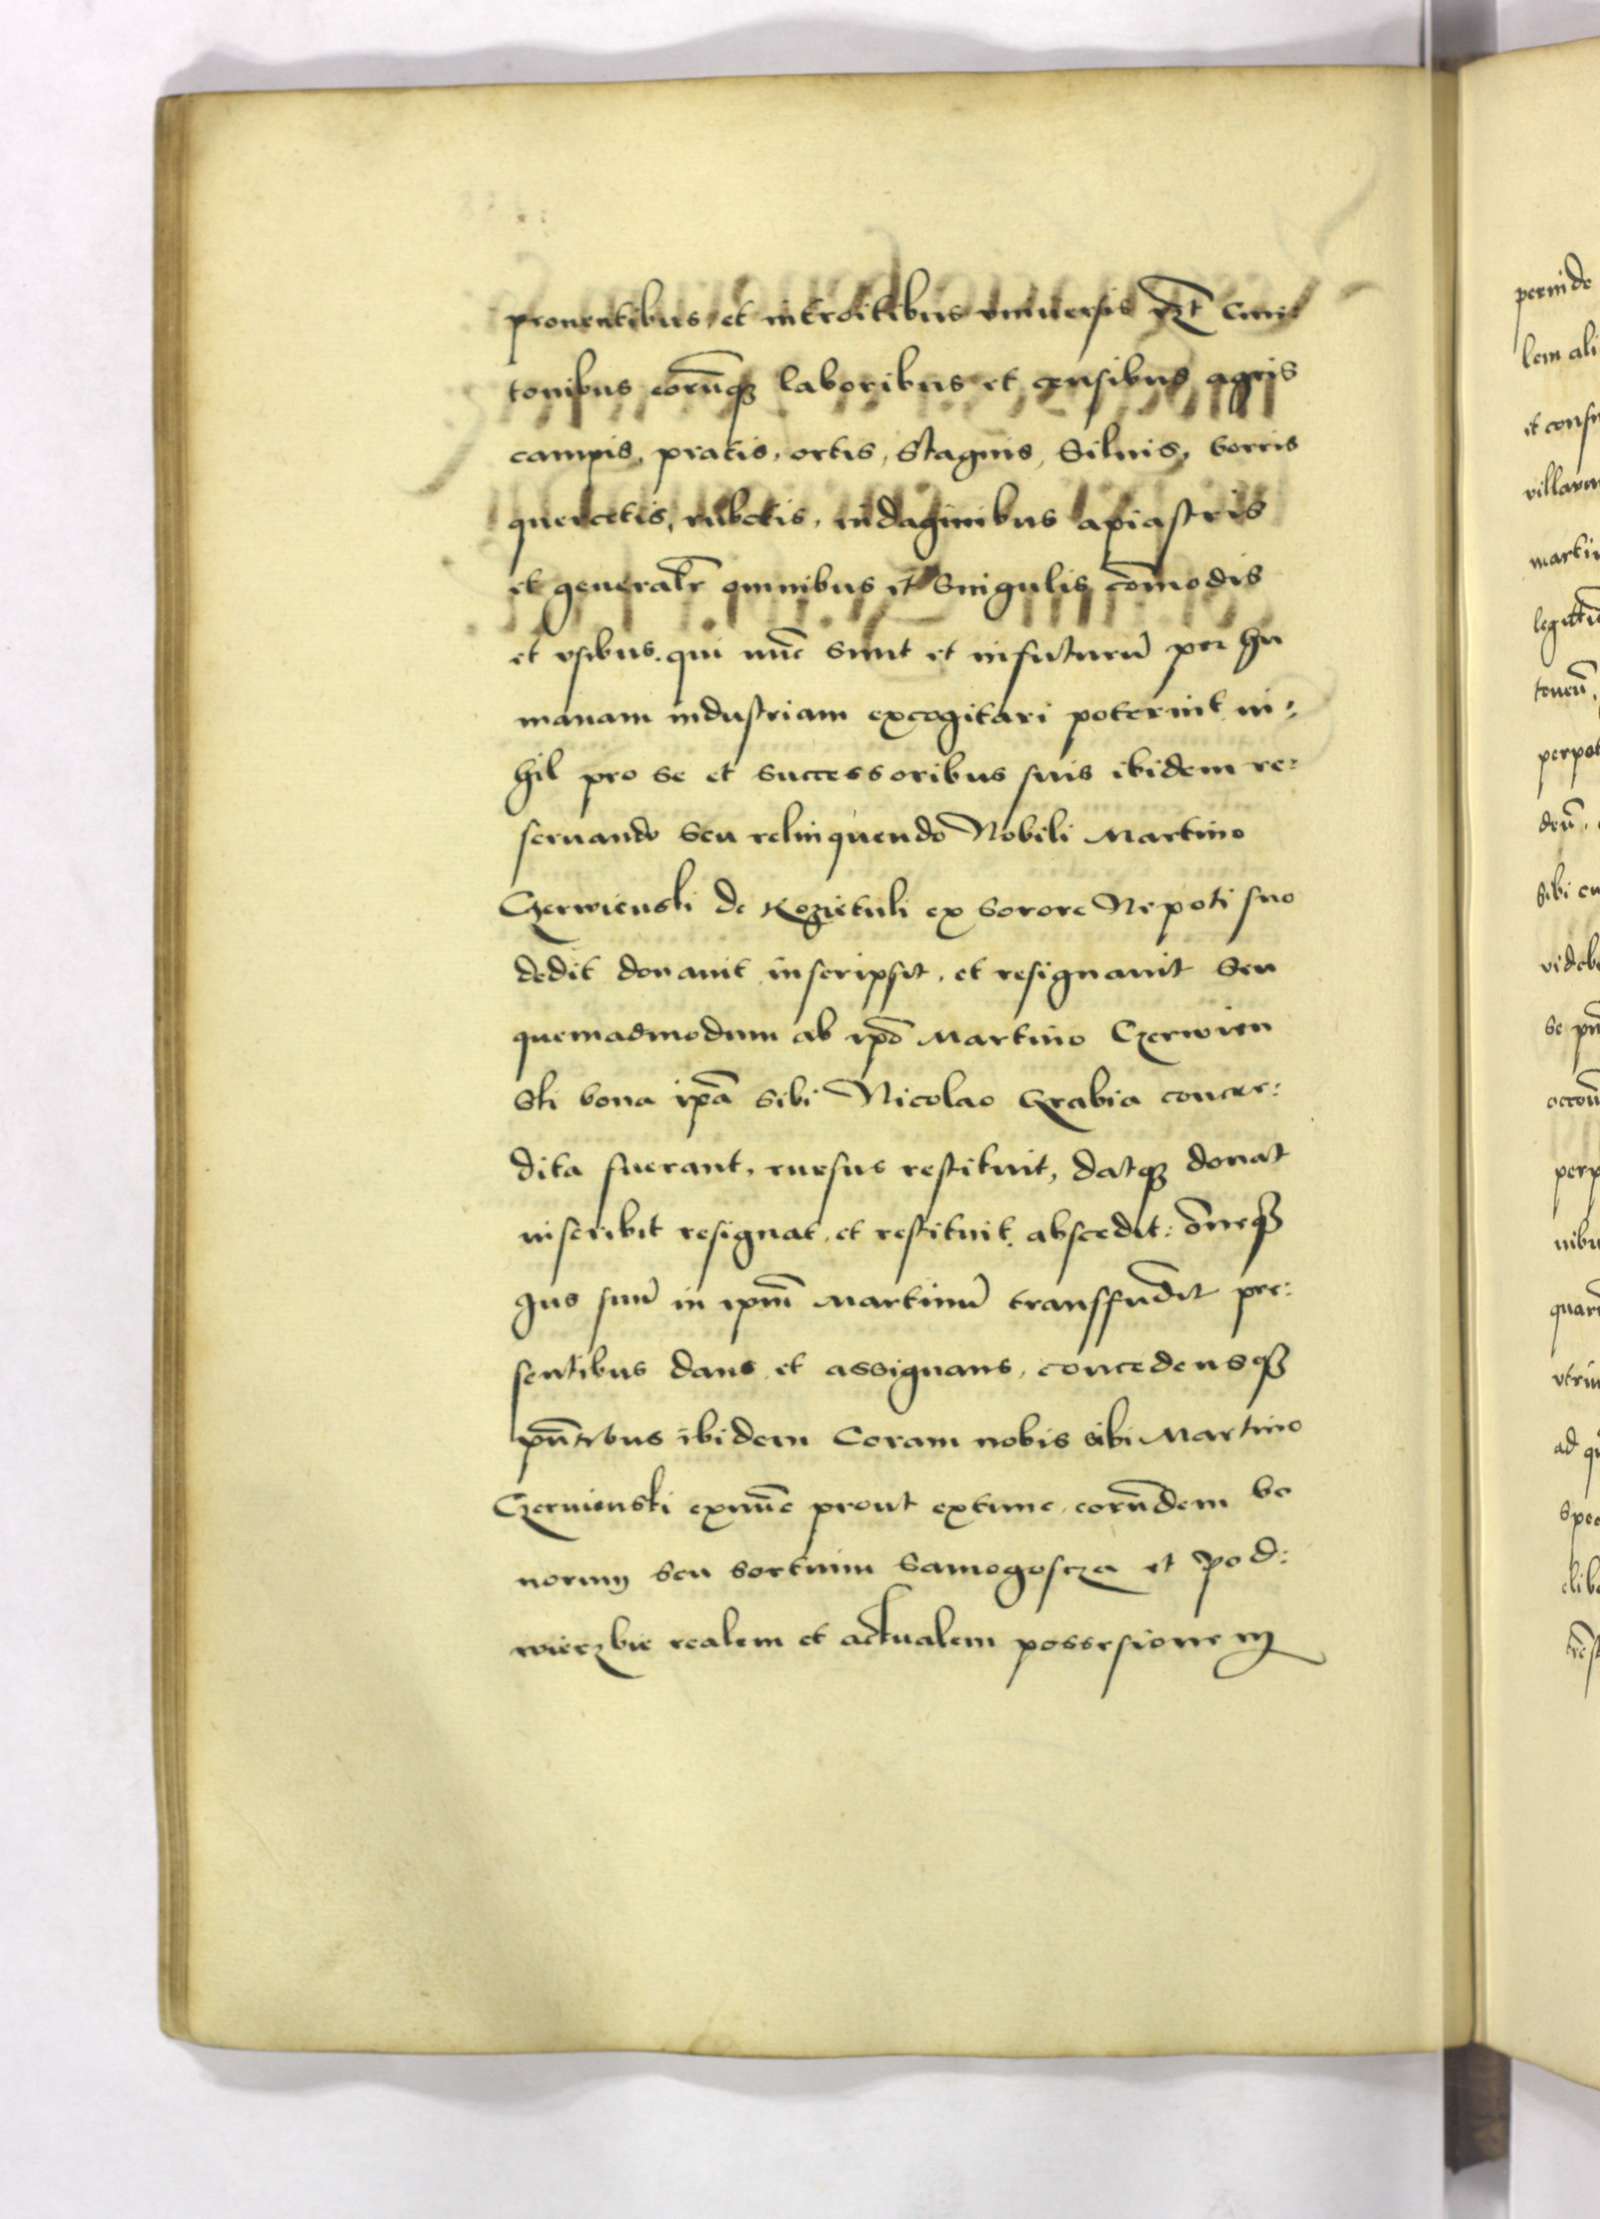 prouentibus, et introitibus vniuersis
tonibus eorūqꝫ laboribus et censibus agris
campis, pratis, ortis, Stagnis, Siluis, borris
quercetis, rubetis, indaginibus apiastris
et generalr̄ omnibus et Singulis cōmodis
et vsibus. qui nūc sunt et infuturū per hu
manam industriam excogitari poterint ni:
hil pro se et successoribus suis ibidem re:
seruando seu relinquendo Nobili Martino
Czerwienski de Kozietuli ex sorore Nepoti suo
dedit donauit inscripsit, et resignauit Seu
quemadmodum ab ipō Martino Czerwien
ski bona ipā sibi Nicolao Grabia conce:
dita fuerant, rursus restituit, datqꝫ donat
inscribit resignat, et restituit abscedit: ōneqꝫ
Jus suū in ipm̄ Martinū transffudit pre:
sentibus dans et assignans, concedensqꝫ
pn̄tibus ibidem Coram nobis sibi Martino
Czeruienski exnūc prout extunc eorūdem bo
norum seu sortium Samogoscza et Pod:
wierzbie realem et actualem possesionem
perinde
lem ali
et consu
villarum
marti
perpet
sibi cu
se pn̄
perp
nibu
ad q